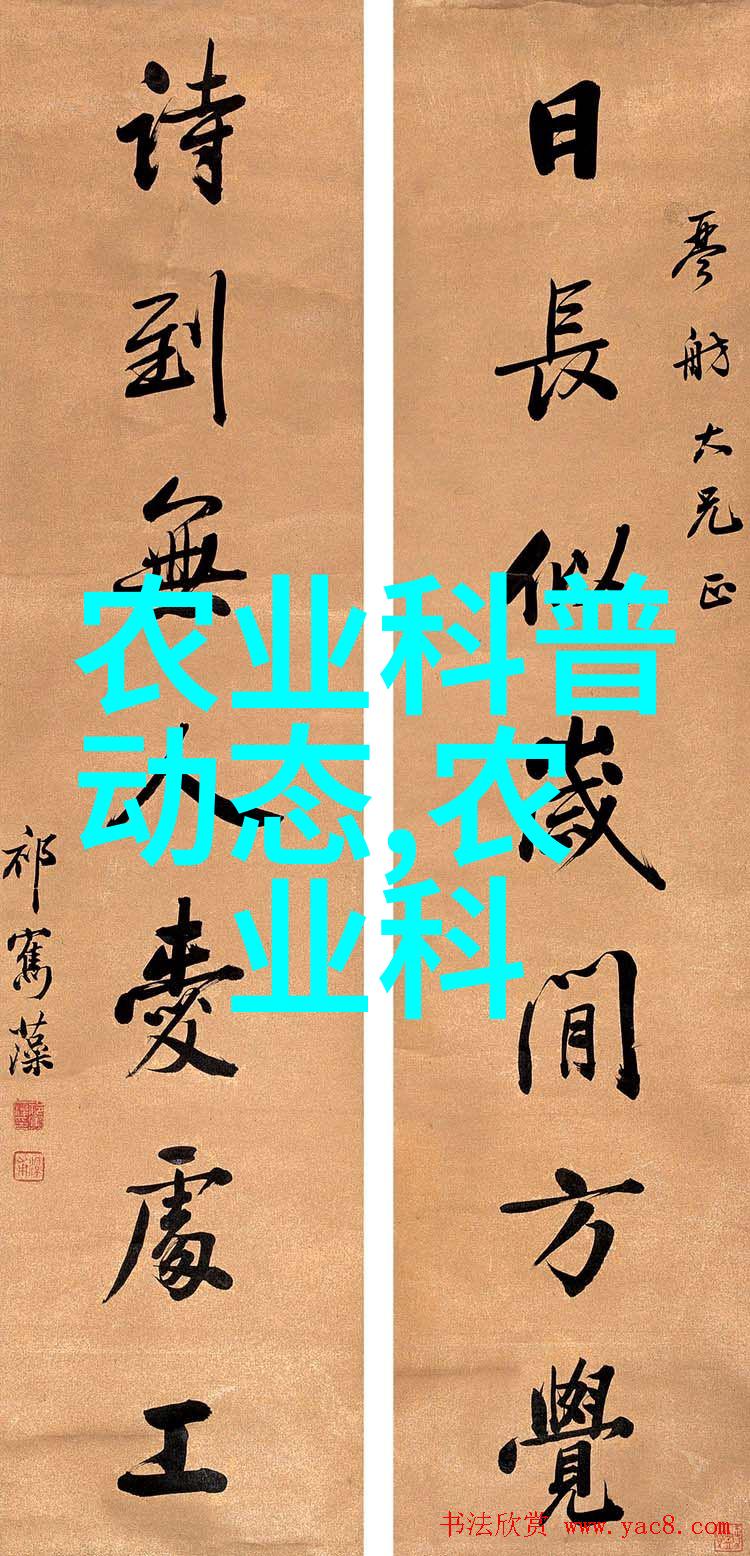 日長似歲閒方覺
琴舫大兄正
詩到無人愛處工
祁寯藻
农业科普
动态,农
业科
书法欣赏 www.yac8.com